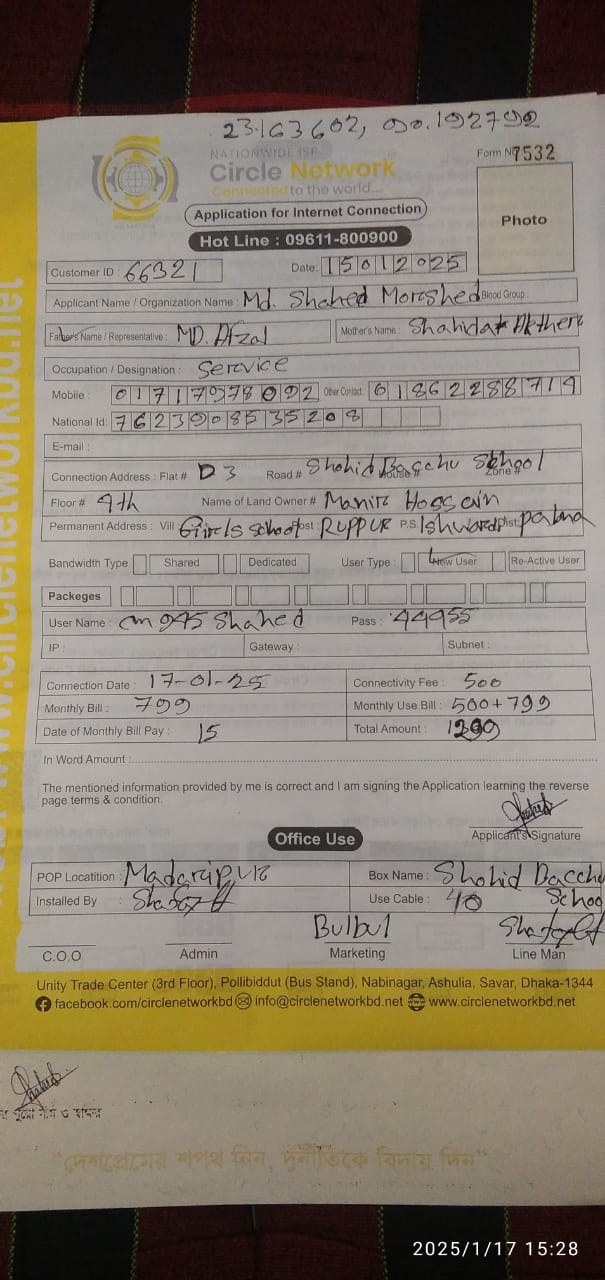 23.163602, 90.192792
NATIONWIDE ISP
Circle Network
Connected to the world....
Form No 7532
Application for Internet Connection
Photo
Hot Line : 09611-800900
Customer ID : 66321 Date: 15012025
Applicant Name / Organization Name : Md. Shahed Morshed Blood Group :
Father's Name / Representative : MD. Afzal Mother's Name : Shahida Akther
Occupation / Designation : Service
Mobile : 01717978092 Other Contact: 01862288714
National Id: 7623908535208
E-mail :
Connection Address : Flat # D3 Road # Shohid Bacchu School House # Zone #
Floor # 9th Name of Land Owner # Hossain
Permanent Address : Vill Girls School Post : RUPPUR P.S. Ishwardi Dist: Pabna
Bandwidth Type Shared Dedicated User Type : New User Re-Active User
Packeges
User Name : cm945 Shahed Pass : 44955
IP : Gateway : Subnet :
Connection Date : 17-01-25 Connectivity Fee : 500
Monthly Bill : 799 Monthly Use Bill : 500+799
Date of Monthly Bill Pay : 15 Total Amount :
In Word Amount :
The mentioned information provided by me is correct and I am signing the Application learning the reverse
page terms & condition.
Applicant's Signature
Office Use
POP Locatition : Madaripur Box Name : Shohid Bacchu School
Installed By : Use Cable : 40
Bulbul
C.O.O Admin Marketing Line Man
Unity Trade Center (3rd Floor), Pollibiddut (Bus Stand), Nabinagar, Ashulia, Savar, Dhaka-1344
facebook.com/circlenetworkbd info@circlenetworkbd.net www.circlenetworkbd.net
www.circlenetworkbd.net
ও স্বাক্ষর
"দেশপ্রেমের শপথ নিন, দুর্নীতিকে বিদায় দিন"
2025/1/17 15:28